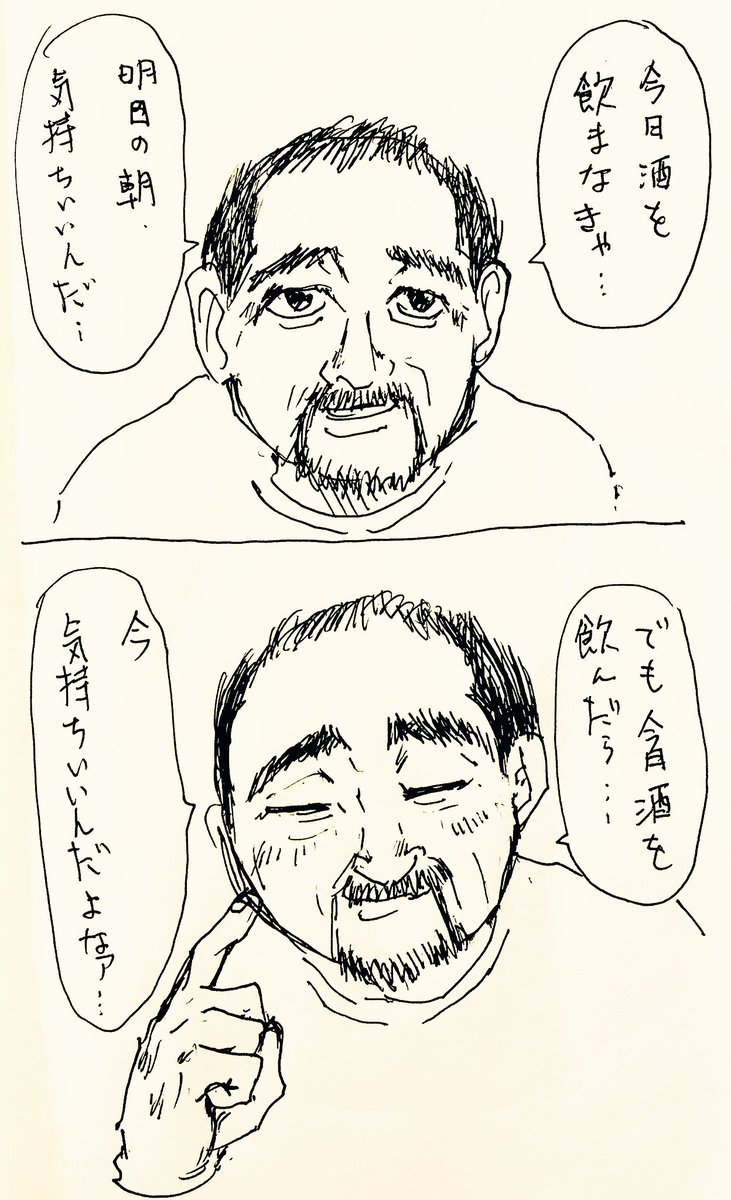 今日酒を
飲まなきゃ…
明日の朝、
気持ちいいんだ…
でも今日酒を
飲んだら…
今
気持ちいいんだよなァ…